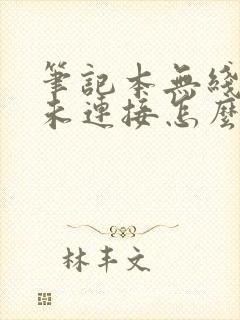 筆記本無綫
未連接怎麽
林丰文